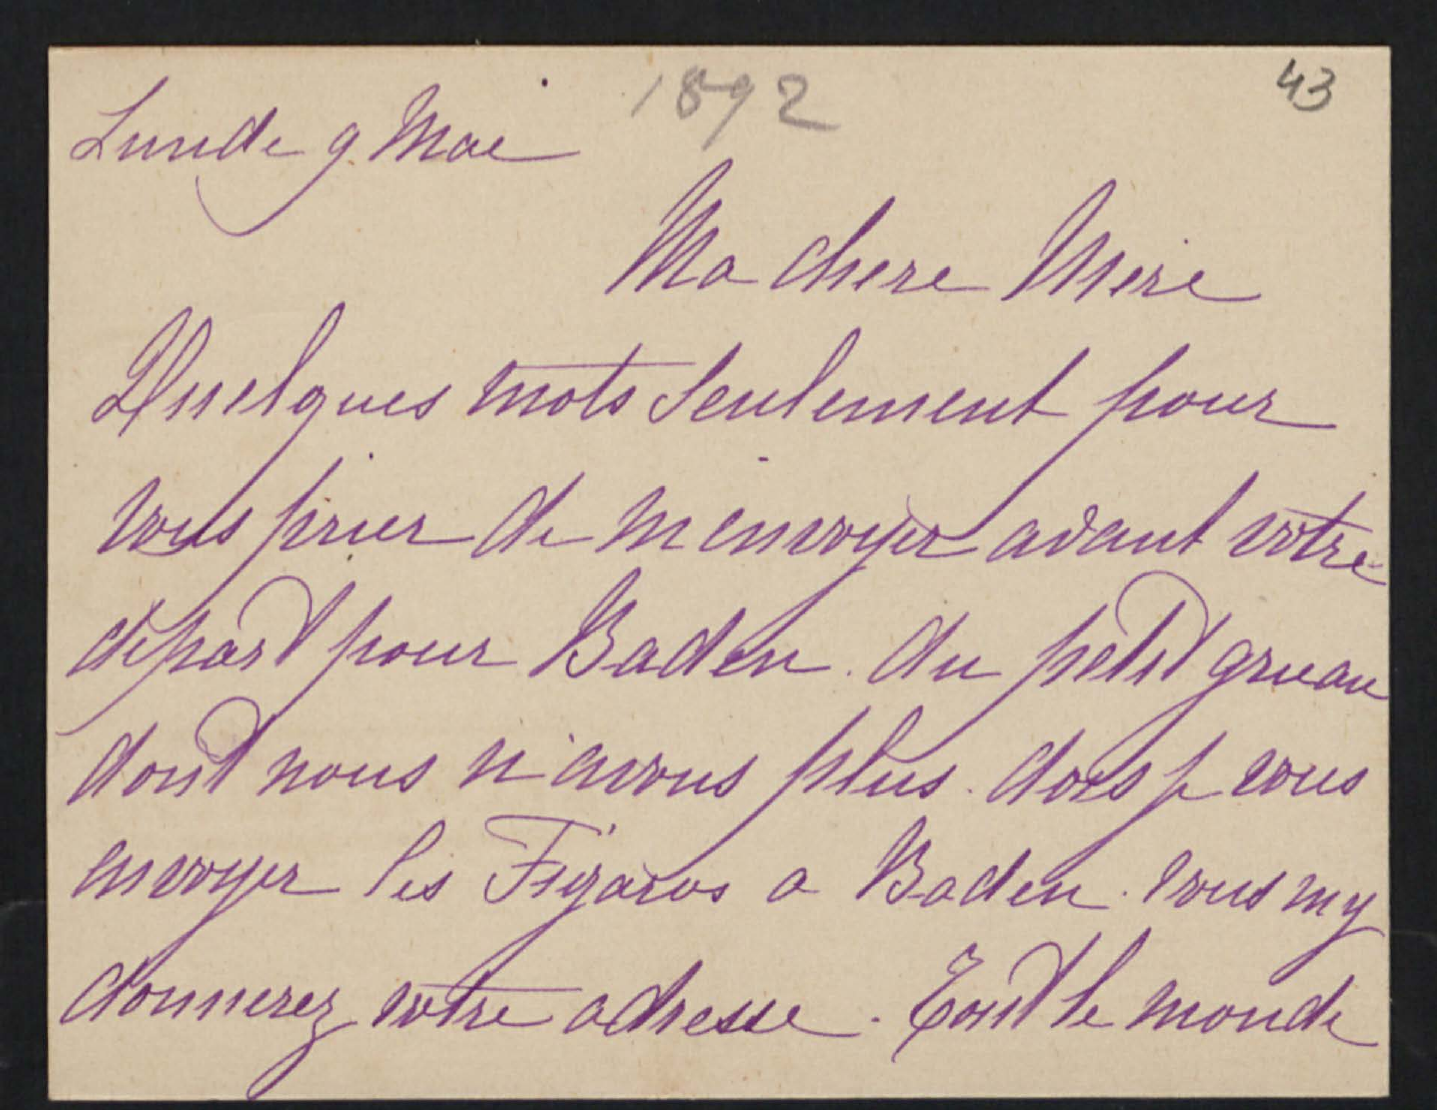 1892
43
Lundi 9 Mai
Ma chere Mere
Quelques mots seulement pour
vous prier de m'envoyer avant votre
départ pour Baden. du petit gruau
dont nous n'avons plus. dois je vous
envoyer les Figaros a Baden. vous my
donnerez votre adresse. Tout le monde